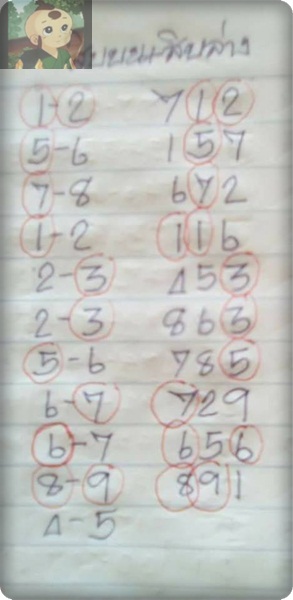 บนชนสิบล่าง
1-2 712
5-6 157
7-8 672
1-2 116
2-3 453
2-3 863
5-6 785
6-7 729
6-7 656
8-9 891
4-5